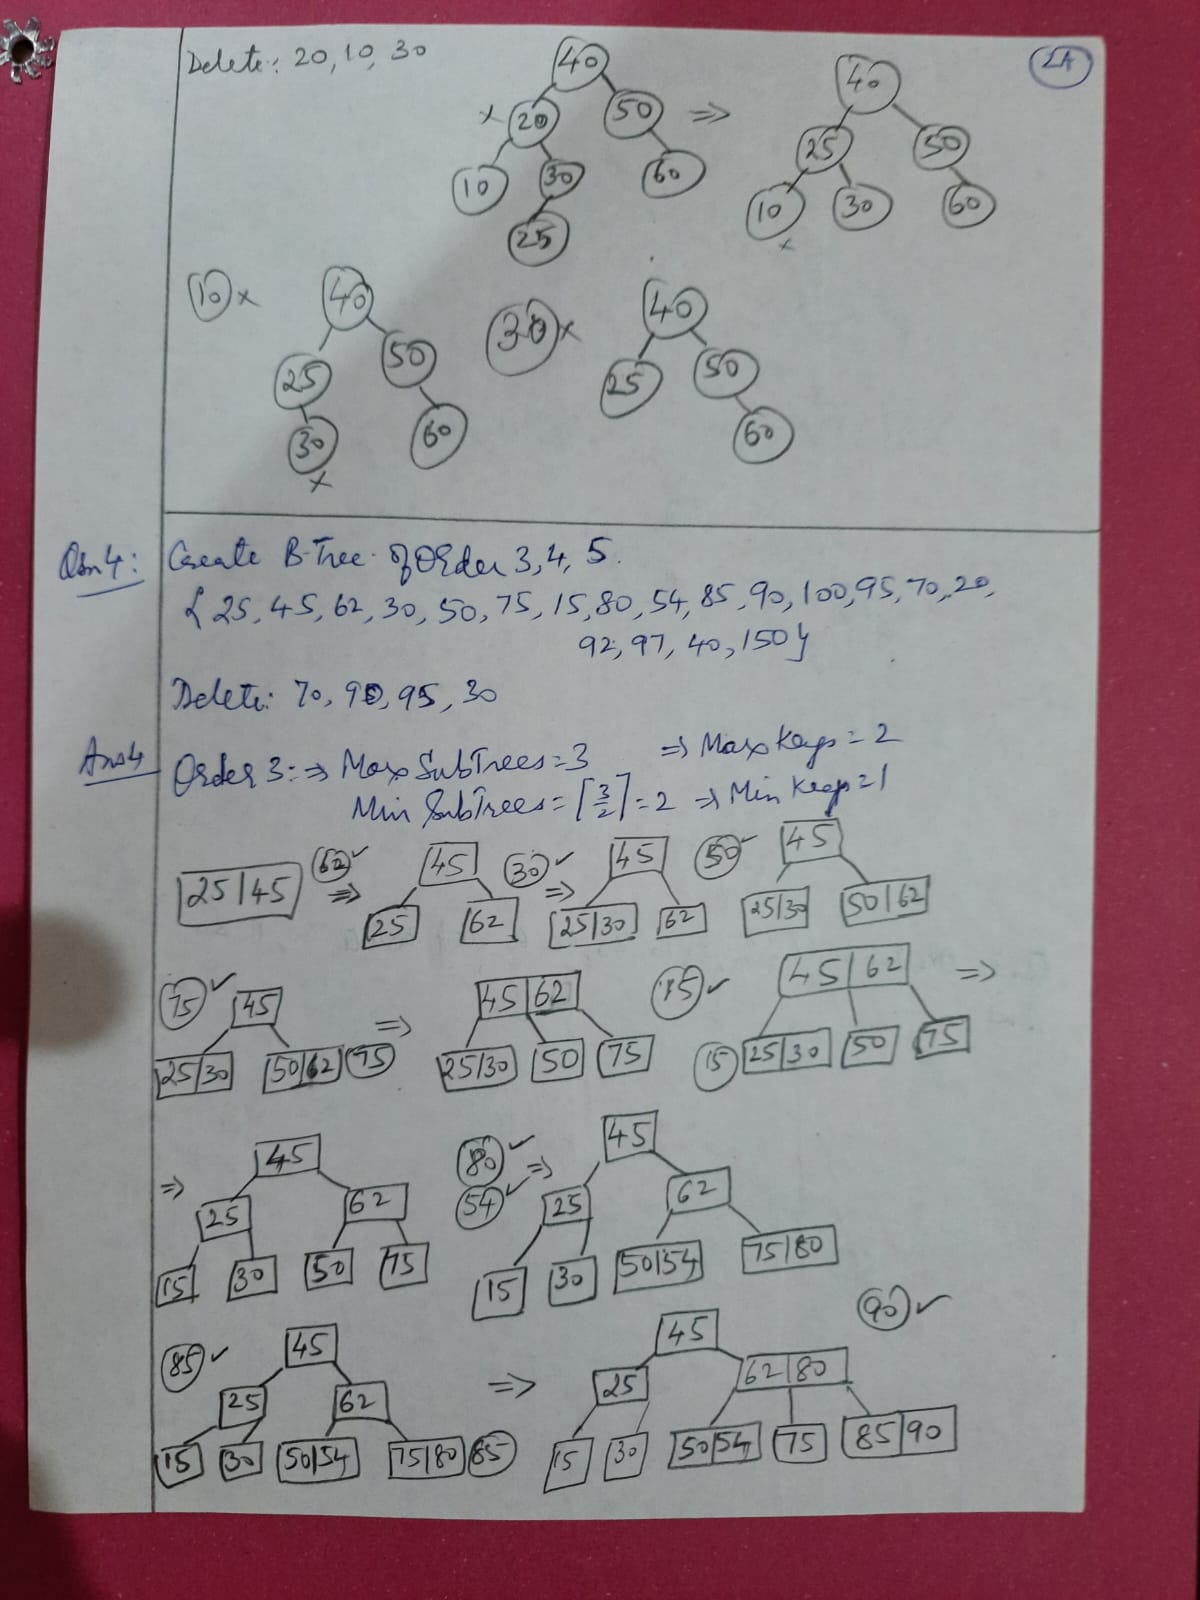 Delete: 20, 10, 30
2A
40
x 20 50 ⇒
10 30 60
25
40
25 50
10 30 60
x
10 x
40
25 50
30 60
x
30 x
40
25 50
60
Qsn 4: Create B-Tree of Order 3, 4, 5.
{ 25, 45, 62, 30, 50, 75, 15, 80, 54, 85, 90, 100, 95, 70, 20,
92, 97, 40, 150 }
Delete: 70, 90, 95, 30
Ans 4 Order 3: ⇒ Max SubTrees = 3 ⇒ Max Keys = 2
Min SubTrees = ⌈3/2⌉ = 2 ⇒ Min Keys = 1
25|45 62 ✓ ⇒
45
25 62
30 ✓ ⇒
45
25|30 62
50 ✓
45
25|30 50|62
75 ✓
45
25|30 50|62 75
⇒
45|62
25|30 50 75
15 ✓
45|62 ⇒
15 25|30 50 75
⇒
45
25 62
15 30 50 75
80 ✓
54 ✓ ⇒
45
25 62
15 30 50|54 75|80
85 ✓
45
25 62
15 30 50|54 75|80 85
⇒
90 ✓
45
25 62|80
15 30 50|54 75 85|90